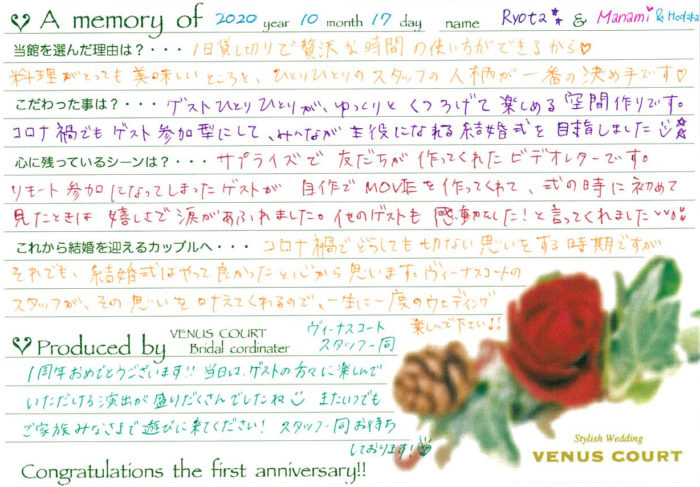 A memory of 2020 year 10 month 17 day name Ryota & Manami & Hodaka
当館を選んだ理由は？・・・ 1日貸し切りで贅沢な時間の使い方ができるから♡
料理がとっても美味しいところと、ひとりひとりのスタッフの人柄が一番の決め手です♡
こだわった事は？・・・ ゲストひとりひとりが、ゆっくりとくつろげて楽しめる空間作りです。
コロナ禍でもゲスト参加型にして、みんなが主役になれる結婚式を目指しました
心に残っているシーンは？・・・ サプライズで友だちが作ってくれたビデオレターです。
リモート参加になってしまったゲストが 自作でMOVIEを作ってくれて、式の時に初めて
見たときは嬉しさで涙があふれました。他のゲストも感動した!と言ってくれました
これから結婚を迎えるカップルへ・・・ コロナ禍でどうしても切ない思いをする時期ですが
それでも、結婚式はやって良かったと心から思います。ヴィーナスコートの
スタッフが、その思いを叶えてくれるので、一生に一度のウェディング
楽しんで下さい!!
Produced by VENUS COURT Bridal cordinater ヴィーナスコート スタッフ一同
1周年おめでとうございます!! 当日は、ゲストの方々に楽しんで
いただける演出が盛りだくさんでしたね またいつでも
ご家族みなさまで遊びに来てください! スタッフ一同お待ち
しております!
Congratulations the first anniversary!!
Stylish Wedding
VENUS COURT